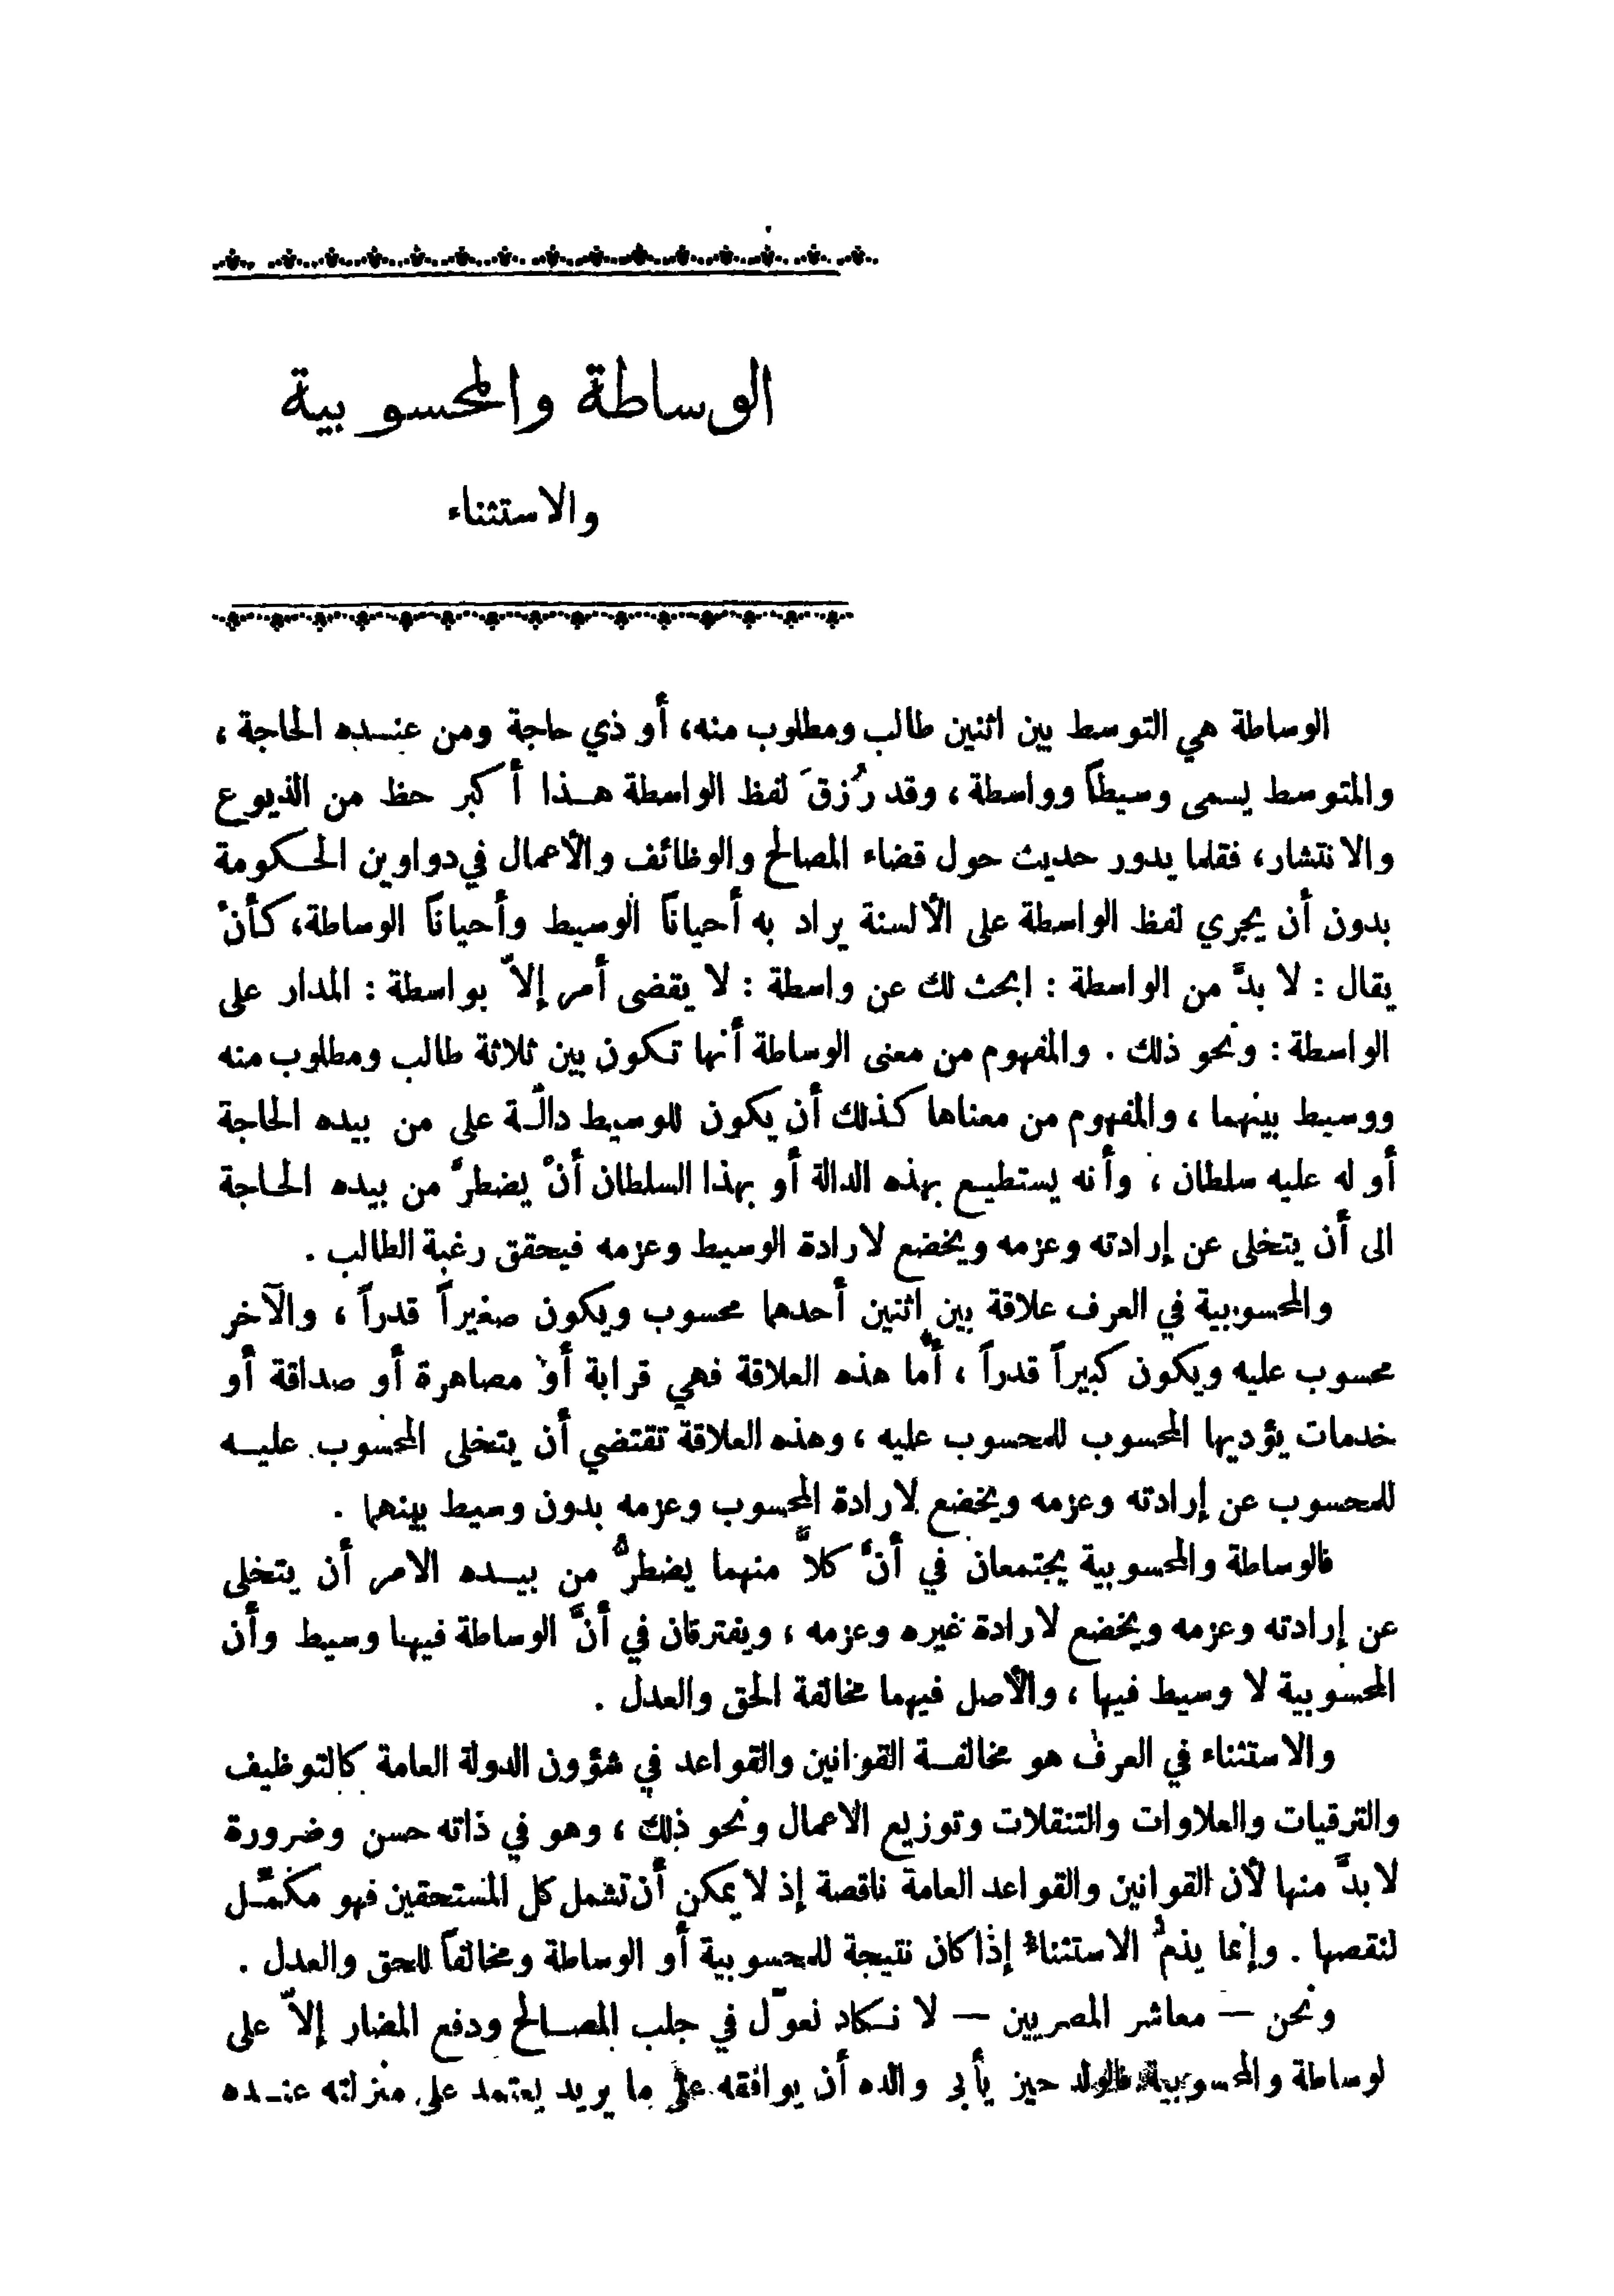 الوساطة والمحسوبية
والاستثناء
الوساطة هي التوسط بين اثنين طالب ومطلوب منه، أو ذي حاجة ومن عنده الحاجة ،
والمتوسط يسمى وسيطاً وواسطة ، وقد رُزقَ لفظ الواسطة هذا أكبر حظ من الذيوع
والانتشار، فقلما يدور حديث حول قضاء المصالح والوظائف والأعمال في دواوين الحكومة
بدون أن يجري لفظ الواسطة على الألسنة يراد به أحياناً الوسيط وأحياناً الوساطة، كأنْ
يقال : لا بدَّ من الواسطة : ابحث لك عن واسطة : لا يقضى أمر إلاّ بواسطة : المدار على
الواسطة : ونحو ذلك . والمفهوم من معنى الوساطة أنها تكون بين ثلاثة طالب ومطلوب منه
ووسيط بينهما ، والمفهوم من معناها كذلك أن يكون للوسيط دالّة على من بيده الحاجة
أو له عليه سلطان ، وأنه يستطيع بهذه الدالة أو بهذا السلطان أنْ يضطرَّ من بيده الحاجة
الى أن يتخلى عن إرادته وعزمه ويخضع لارادة الوسيط وعزمه فيحقق رغبة الطالب .
والمحسوبية في العرف علاقة بين اثنين أحدهما محسوب ويكون صغيراً قدراً ، والآخر
محسوب عليه ويكون كبيراً قدراً ، أمّا هذه العلاقة فهي قرابة أو مصاهرة أو صداقة أو
خدمات يؤديها المحسوب للمحسوب عليه ، وهذه العلاقة تقتضي أن يتخلى المحسوب عليه
للمحسوب عن إرادته وعزمه ويخضع لارادة المحسوب وعزمه بدون وسيط بينهما .
فالوساطة والمحسوبية يجتمعان في أنَّ كلاًّ منهما يضطرُّ من بيده الامر أن يتخلى
عن إرادته وعزمه ويخضع لارادة غيره وعزمه ، ويفترقان في أنَّ الوساطة فيها وسيط وأن
المحسوبية لا وسيط فيها ، والأصل فيهما مخالفة الحق والعدل .
والاستثناء في العرف هو مخالفة القوانين والقواعد في شؤون الدولة العامة كالتوظيف
والترقيات والعلاوات والتنقلات وتوزيع الاعمال ونحو ذلك ، وهو في ذاته حسن وضرورة
لا بدَّ منها لأن القوانين والقواعد العامة ناقصة إذ لا يمكن أن تشمل كل المستحقين فهو مكمِّل
لنقصها . وإنما يذمُّ الاستثناءُ إذا كان نتيجة للمحسوبية أو الوساطة ومخالفاً للحق والعدل .
ونحن — معاشر المصريين — لا نكاد نعوّل في جلب المصالح ودفع المضار إلاّ على
لوساطة والمحسوبية فالولد حين يأبى والده أن يوافقه على ما يريد يعتمد على منزلته عنده